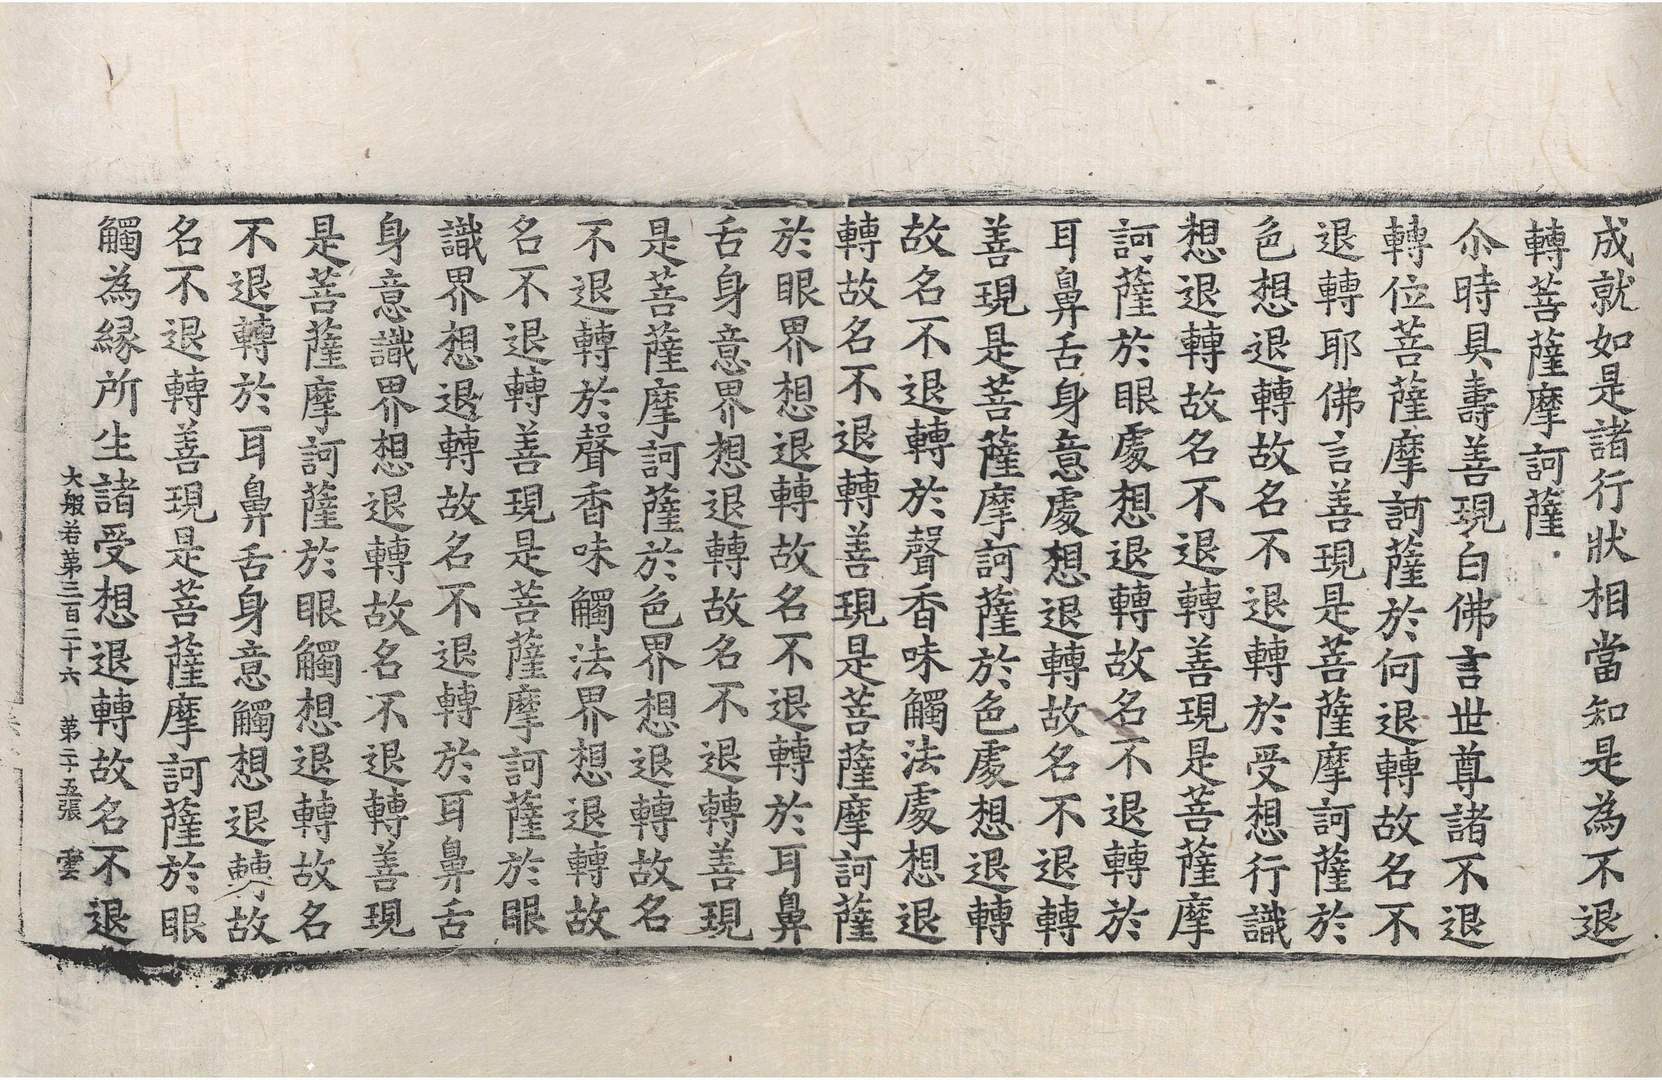 成就如是諸行狀相當知是為不退
轉菩薩摩訶薩
尒時具壽善現白佛言世尊諸不退
轉位菩薩摩訶薩於何退轉故名不
退轉耶佛言善現是菩薩摩訶薩於
色想退轉故名不退轉於受想行識
想退轉故名不退轉善現是菩薩摩
訶薩於眼處想退轉故名不退轉於
耳鼻舌身意處想退轉故名不退轉
善現是菩薩摩訶薩於色處想退轉
故名不退轉於聲香味觸法處想退
轉故名不退轉善現是菩薩摩訶薩
於眼界想退轉故名不退轉於耳鼻
舌身意界想退轉故名不退轉善現
是菩薩摩訶薩於色界想退轉故名
不退轉於聲香味觸法界想退轉故
名不退轉善現是菩薩摩訶薩於眼
識界想退轉故名不退轉於耳鼻舌
身意識界想退轉故名不退轉善現
是菩薩摩訶薩於眼觸想退轉故名
不退轉於耳鼻舌身意觸想退轉故
名不退轉善現是菩薩摩訶薩於眼
觸為緣所生諸受想退轉故名不退
大般若第三百二十六 第二十五張 雲